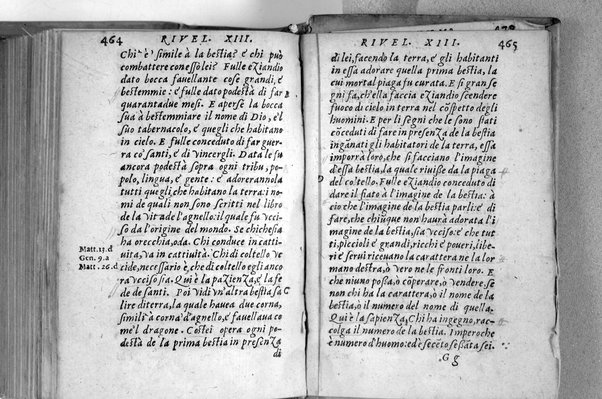 464 RIVEL. XIII.
Chi è simile à la bestia? è chi può
combattere con essolei? Fulle eziandio
dato bocca favellante cose grandi, è
bestemmie: è fulle dato podestà di far
quarantadue mesi. E aperse la bocca
sua à bestemmiare il nome di Dio, e'l
suo tabernacolo, è quegli che habitano
in cielo. E fulle conceduto di far guer
ra cò santi, è di vincergli. Data le fu
ancora podestà sopra ogni tribu, po-
polo, lingua, è gente: è adorerannola
tutti quegli, che habitano la terra: i no-
mi de quali non sono scritti nel libro
de la vita de l'agnello: il quale fu ucci-
so da l'origine del mondo. Se chichesia
ha orecchia, oda. Chi conduce in catti-
vita, va in cattiuità. Chi di coltello vc
cide, necessario è, che di coltello egli anco
ra vcciso sia. Qui è la pazienza, è la fe
de de santi. Poi vidi vn'altra bestia sa
lire di terra, la quale hauea due corna,
simili à corna d'agnello, è fauellaua co
me'l dragone. Costei opera ogni po-
destà de la prima bestia in presenza
di
B
C
Matt. 13. d
Gen. 9. a
Matt. 26. d
RIVEL. XIII. 465
di lei, facendo la terra, è gli habitanti
in essa adorare quella prima bestia, la
cui mortal piaga fu curata. E fi gran se
gni fa, ch'ella faccia eziandio scendere
fuoco di cielo in terra nel cõspetto degli
huomini. E per li segni che le sono stati
cõceduti di fare in presẽza de la bestia
ingãnati gli habitatori de la terra, essa
imporrà loro, che si facciano l'imagine
d'essa bestia, la quale riuisse da la piaga
del coltello. Fulle eziandio conceduto di
dare il fiato à l'imagine de la bestia: à
cio che l'imagine de la bestia parli: è di
fare, che chiũque non haurà adorata l'i
magine de la bestia, sia vcciso: è che tut
ti, piccioli è grandi, ricchi è poueri, libe-
ri è serui riceuano la carattera ne la lor
mano destra, ò vero ne le fronti loro. E
che niuno possa, ò cõperare, ò vendere, se
non chi ha la carattera, ò il nome de la
bestia, ò il numero del nome di quella.
Qui è la sapienza, Chi ha ingegno, rac-
colga il numero de la bestia. Imperoche
è numero d'huomo: ed è secẽto sessãta sei.
G g